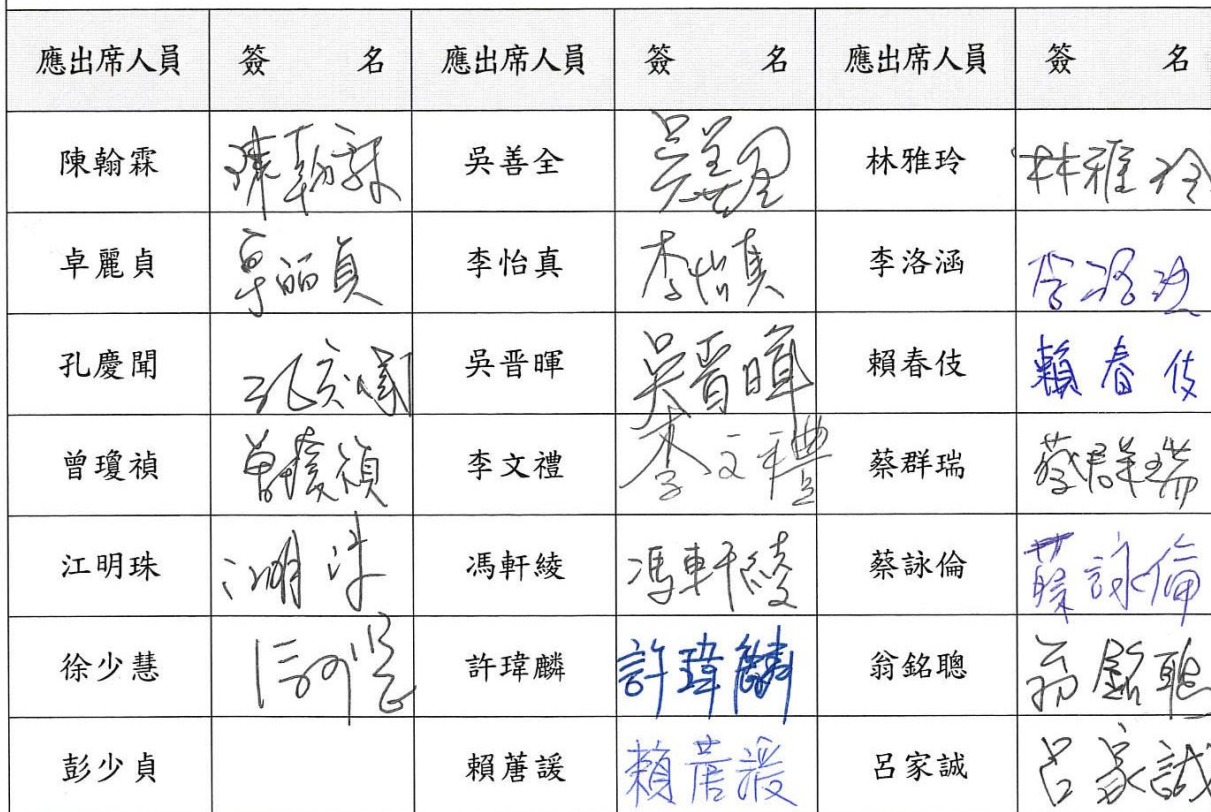 應出席人員 簽 名 應出席人員 簽 名 應出席人員 簽 名
陳翰霖 陳翰霖 吳善全 吳善全 林雅玲 林雅玲
卓麗貞 卓麗貞 李怡真 李怡真 李洛涵 李洛涵
孔慶聞 孔慶聞 吳晉暉 吳晉暉 賴春伎 賴春伎
曾瓊禎 曾瓊禎 李文禮 李文禮 蔡群瑞 蔡群瑞
江明珠 江明珠 馮軒綾 馮軒綾 蔡詠倫 蔡詠倫
徐少慧 許瑋麟 許瑋麟 翁銘聰 翁銘聰
彭少貞 賴蓎諼 呂家誠 呂家誠